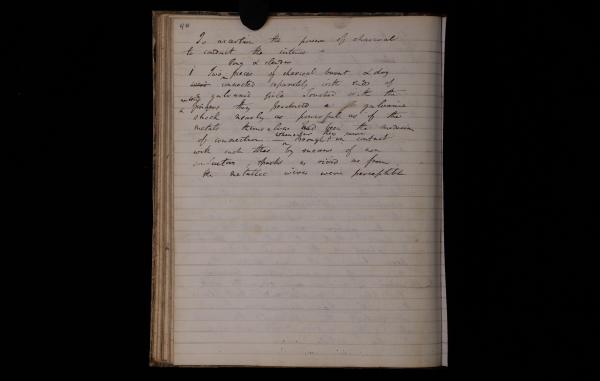 To ascertain the power of charcoal
to conduct the
long & slender
1 Two pieces of charcoal burnt & dry
connected separately with ends of
galvanic pile touched with the
fingers they produced a galvanic
shock nearly as powerful as if the
metals themselves had been the medium
of connection they were
brought in contact
with each other by means of non
conductors, sparks as vivid as from
the metallic wires were perceptible